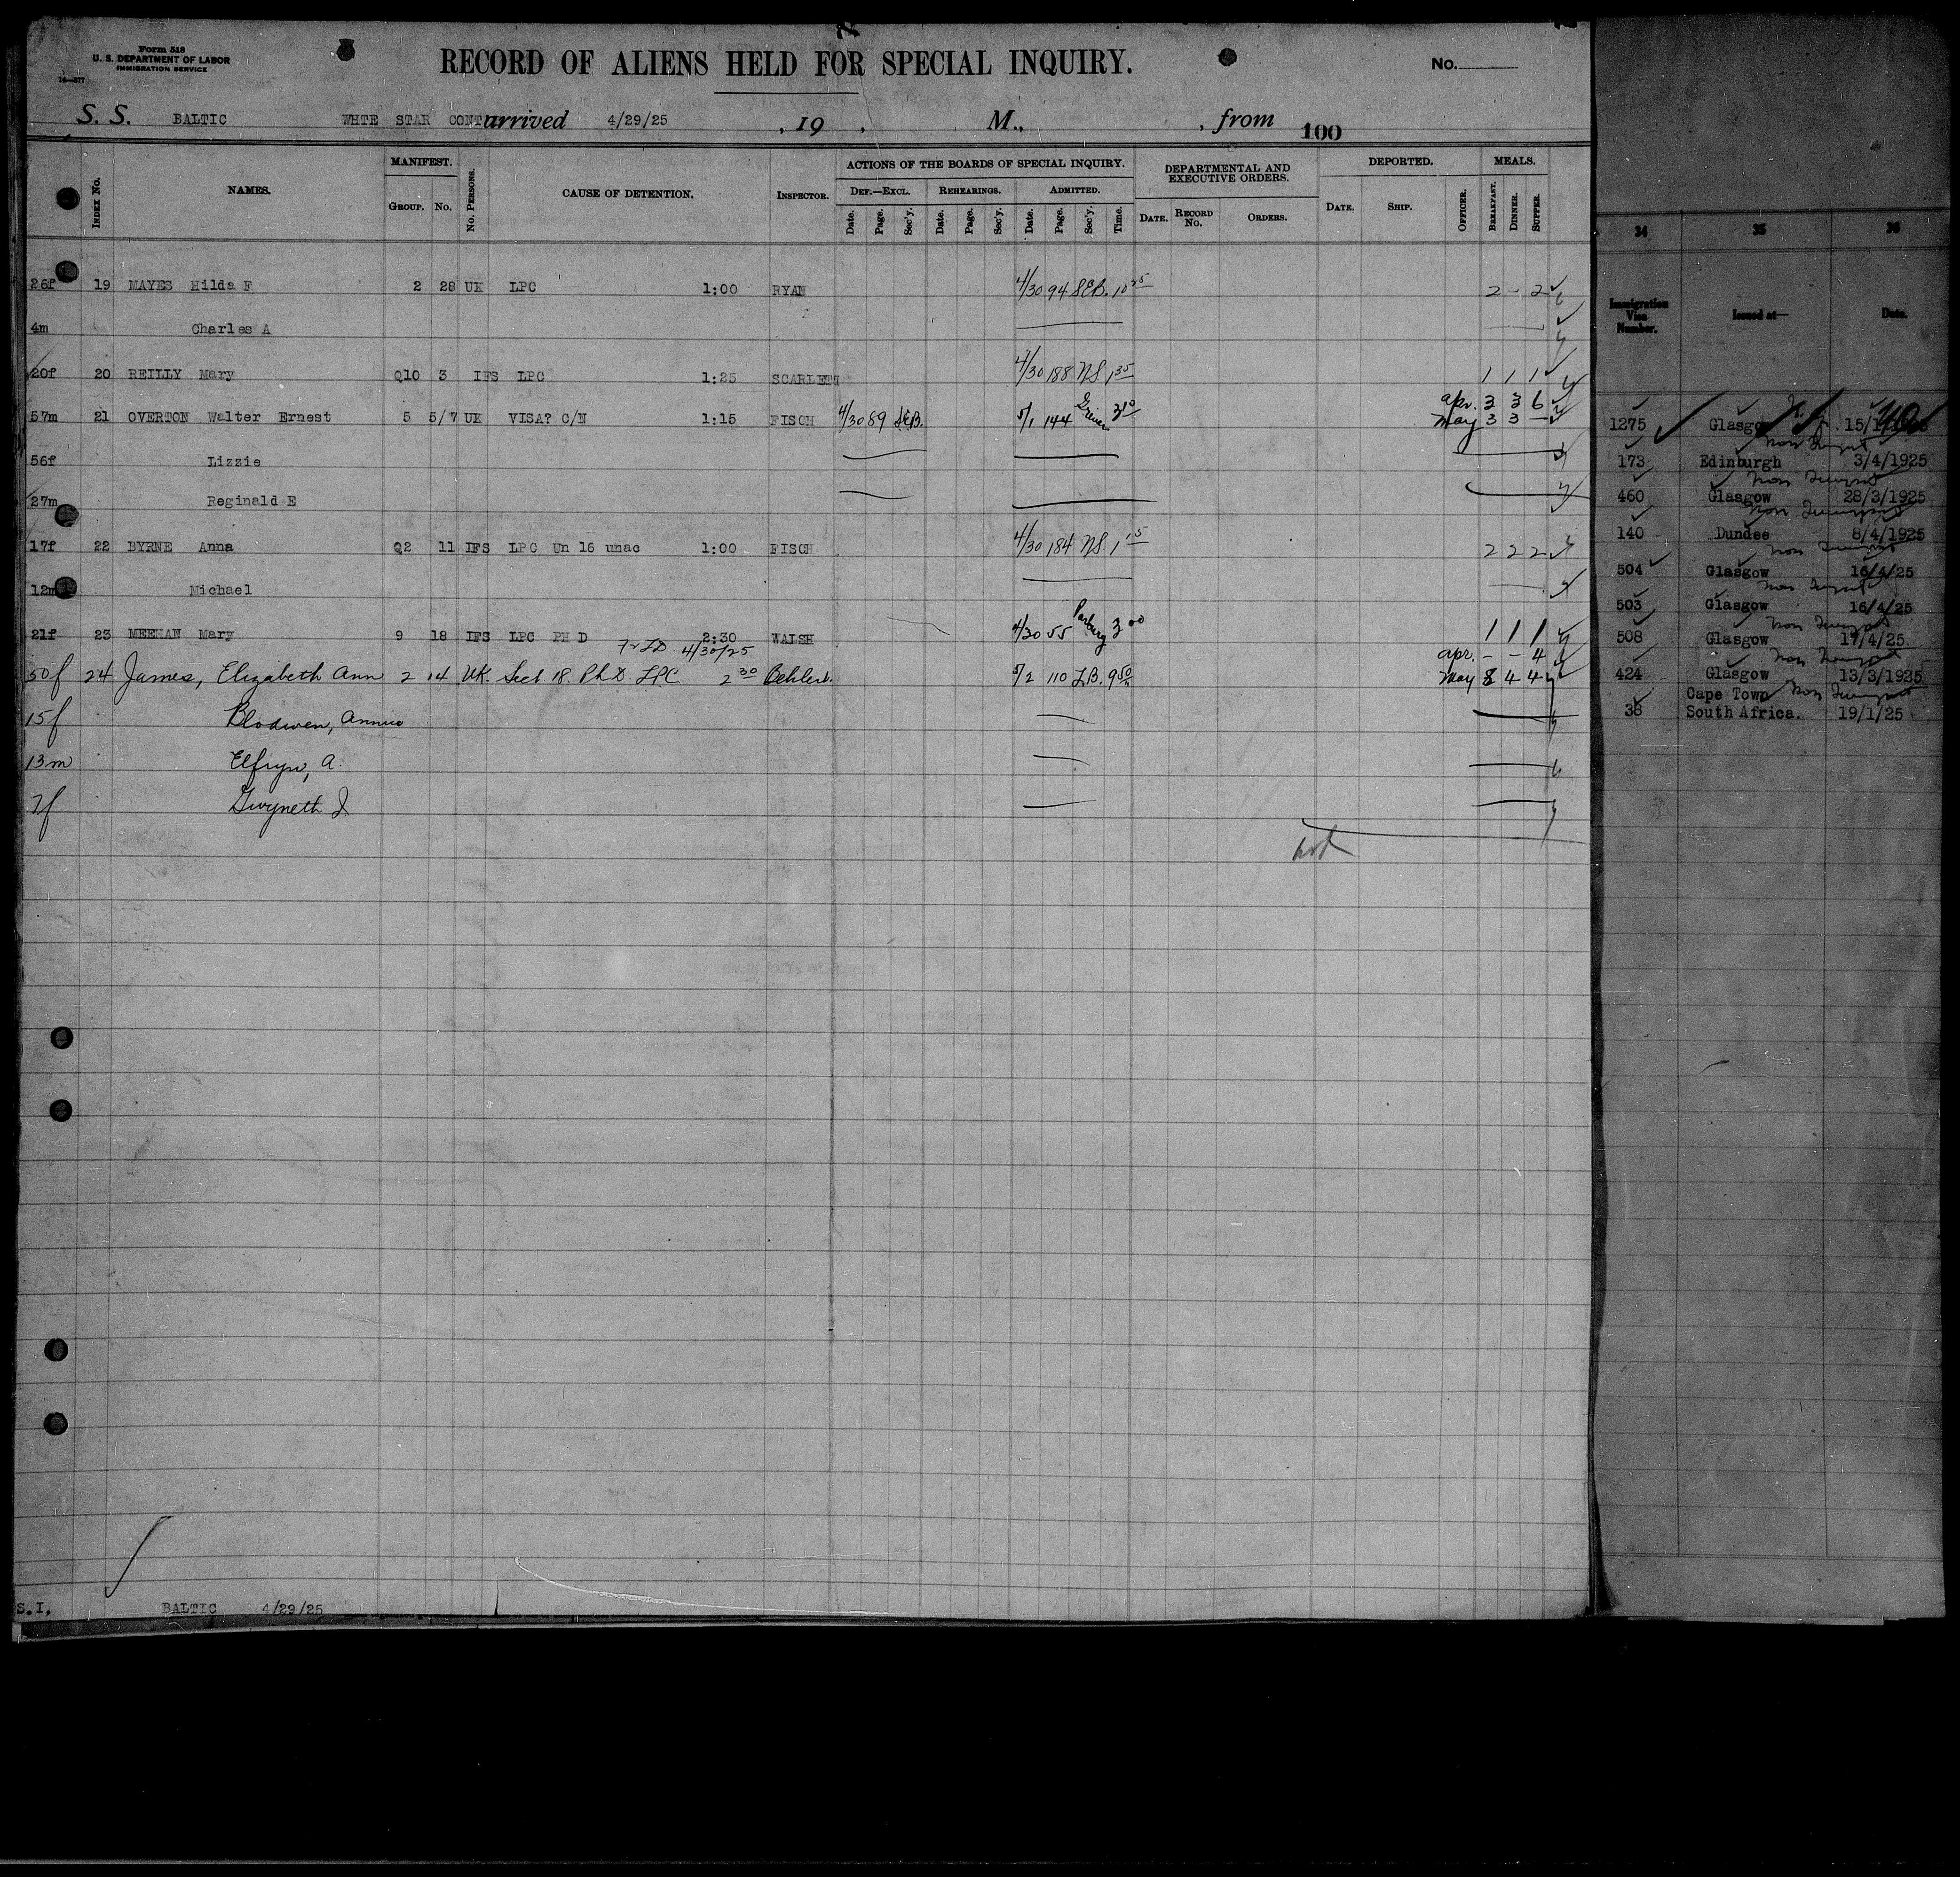 Form 518
U. S. DEPARTMENT OF LABOR
IMMIGRATION SERVICE
RECORD OF ALIENS HELD FOR SPECIAL INQUIRY.
No.
S. S. BALTIC WHTE STAR CONT arrived 4/29/25 , 19 , M., , from 100
INDEX No. NAMES. MANIFEST. GROUP. No. No. PERSONS. CAUSE OF DETENTION. INSPECTOR. ACTIONS OF THE BOARDS OF SPECIAL INQUIRY. DEF.—EXCL. Date. Page. Sec'y. REHEARINGS. Date. Page. Sec'y. ADMITTED. Date. Page. Sec'y. Time. DEPARTMENTAL AND EXECUTIVE ORDERS. DATE. RECORD No. ORDERS. DEPORTED. DATE. SHIP. OFFICER. MEALS. BREAKFAST. DINNER. SUPPER.
26f 19 MAYES Hilda F 2 28 UK LPC 1:00 RYAN 4/30 94 SEB. 10 25 2 - 2
4m Charles A
20f 20 REILLY Mary Q10 3 IFS LPC 1:25 SCARLETT 4/30 188 NS 1 35 1 1 1
57m 21 OVERTON Walter Ernest 5 5/7 UK VISA? C/N 1:15 FISCH 4/30 89 SEB. 5/1 144 3 10 Apr. 3 3 6
May 3 3 —
56f Lizzie
27m Reginald E
17f 22 BYRNE Anna Q2 11 IFS LPC Un 16 unac 1:00 FISCH 4/30 184 NS 1 15 2 2 2
12m Michael
21f 23 MEEHAN Mary 9 18 IFS LPC PH D 2:30 WALSH 4/30 55 3 00 1 1 1
4/30/25
Apr. - - 4
50f 24 James, Elizabeth Ann 2 14 UK. Sect 18. Ph.D. LPC 2 30 5/2 110 L.B. 9 50 May 8 4 4
15f Blodwen, Annie
13m Elfryn, A.
7f Gwyneth J
S.I. BALTIC 4/29/25
34 35 36
Immigration Visa Number. Issued at— Date.
1275 Glasgow
173 Edinburgh 3/4/1925
460 Glasgow 28/3/1925
140 Dundee 8/4/1925
504 Glasgow 16/4/25
503 Glasgow 16/4/25
508 Glasgow 17/4/25.
424 Glasgow 13/3/1925
Cape Town
38 South Africa. 19/1/25